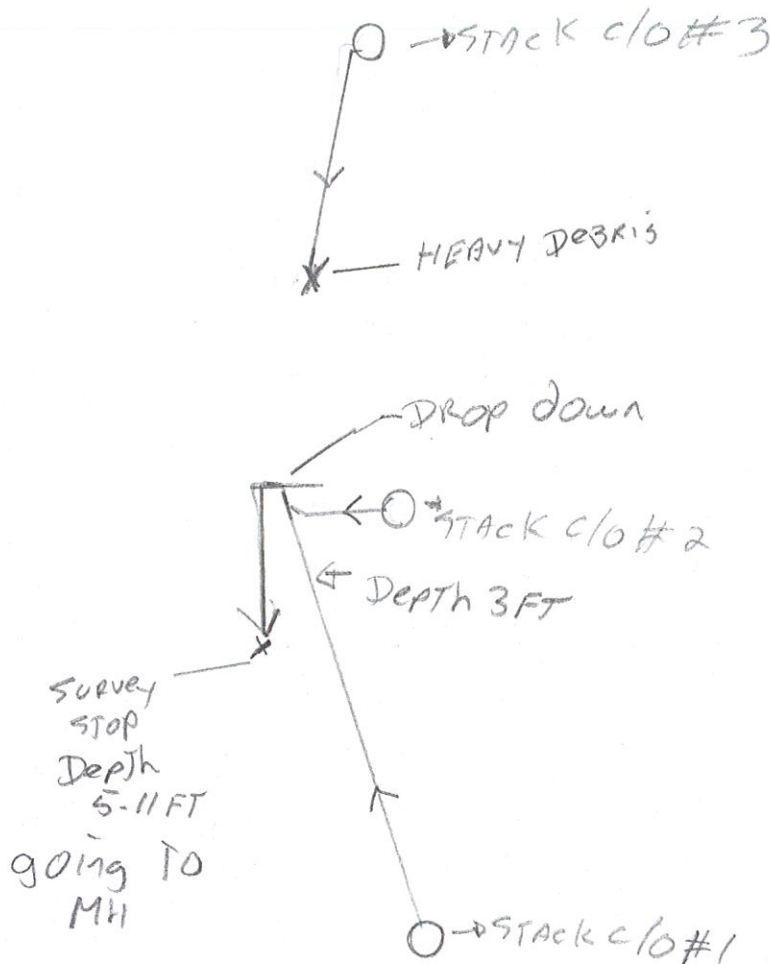 STACK C/O # 3
HEAVY DEBRIS
DROP down
STACK C/O # 2
Depth 3 FT
SURVEY
STOP
Depth
5-11 FT
going TO
MH
STACK C/O #1